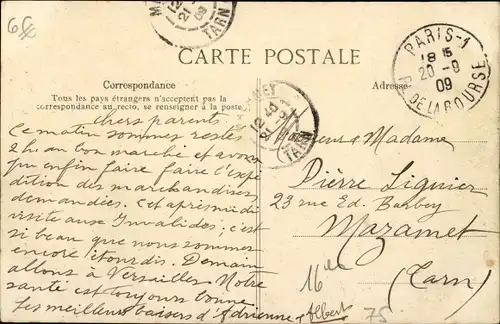 6
MAZAMET
12 40
21-8
09
TARN
CARTE POSTALE
PARIS-1
18 15
20-8
09
Pl. DE LA BOURSE
Correspondance
Tous les pays étrangers n'acceptent pas la
correspondance au recto, se renseigner à la poste
Adresse
chers parents
Ce matin sommes restés
2 h. au bon marché et avons
pu enfin faire faire l'expé
dition des marchandises
demandées. Cet après midi
visite aux Invalides; c'est
si beau que nous sommes
encore étourdis. Demain
allons à Versailles. Notre
santé est toujours bonne.
Les meilleurs baisers d'Adrienne, Albert
MAZAMET
12 40
21
TARN
Monsieur & Madame
Pierre Liguier
23 rue Ed. Barbey
Mazamet
(Tarn)
75